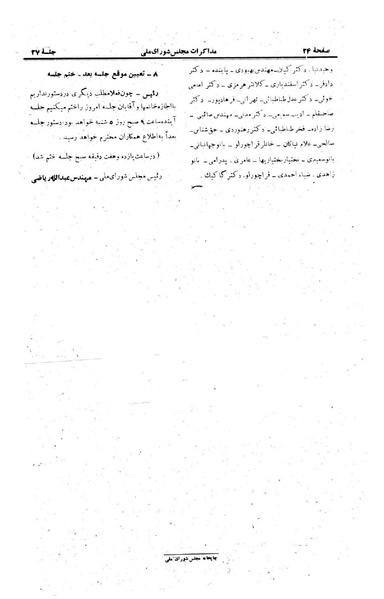 صفحهٔ ۲۶
مذاکرات مجلس شورای ملی
جلسهٔ ۲۷
وحیدنیا ـ دکتر کیان ـ مهندس بهبودی ـ پاینده ـ دکتر
دادفر ـ دکتر اسفندیاری ـ کلانتر هرمزی ـ دکتر امامی
خوئی ـ دکتر عدل طباطبائی ـ تهرانی ـ فرهادپور ـ
صائب ـ رضازاده ـ فخر طباطبائی ـ دکتر رهنوردی ـ حق شناس ـ
صالحی ـ غلام نیاکان ـ خانلر قراچورلو ـ بانو جهانبانی ـ
بانو سعیدی ـ بختیار بختیاریها ـ عامری ـ پدرامی ـ بانو
زاهدی ـ ضیاء احمدی ـ قراچورلو ـ دکتر گاگیک.
۸ ـ تعیین موقع جلسه بعد ـ ختم جلسه
رئیس ـ چون فعلا مطلب دیگری در دستور نداریم
با اجازه خانمها و آقایان جلسه امروز را ختم میکنیم جلسه
آینده ساعت ۹ صبح روز ۵ شنبه خواهد بود دستور جلسه
بعداً به اطلاع همکاران محترم خواهد رسید.
(در ساعت یازده و هفت دقیقه صبح جلسه ختم شد)
رئیس مجلس شورای ملی ـ مهندس عبدالله ریاضی
چاپخانه مجلس شورای ملی